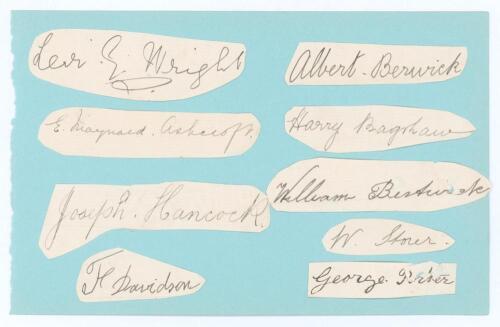 Levi. G. Wright
E. Maynard. Ashcroft.
Joseph. Hancock.
F Davidson
Albert. Berwick
Harry Bagshaw
William Bestwick
W. Storer.
George.